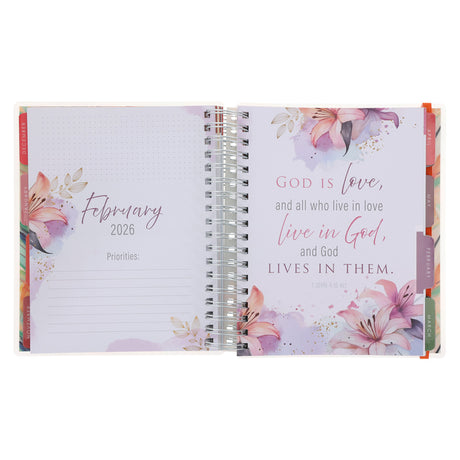 DECEMBER
JANUARY
February
2026
Priorities:
GOD IS love,
and all who live in love
live in God,
and God
LIVES IN THEM.
1 JOHN 4:16 NLT
APRIL
MAY
FEBRUARY
MARCH